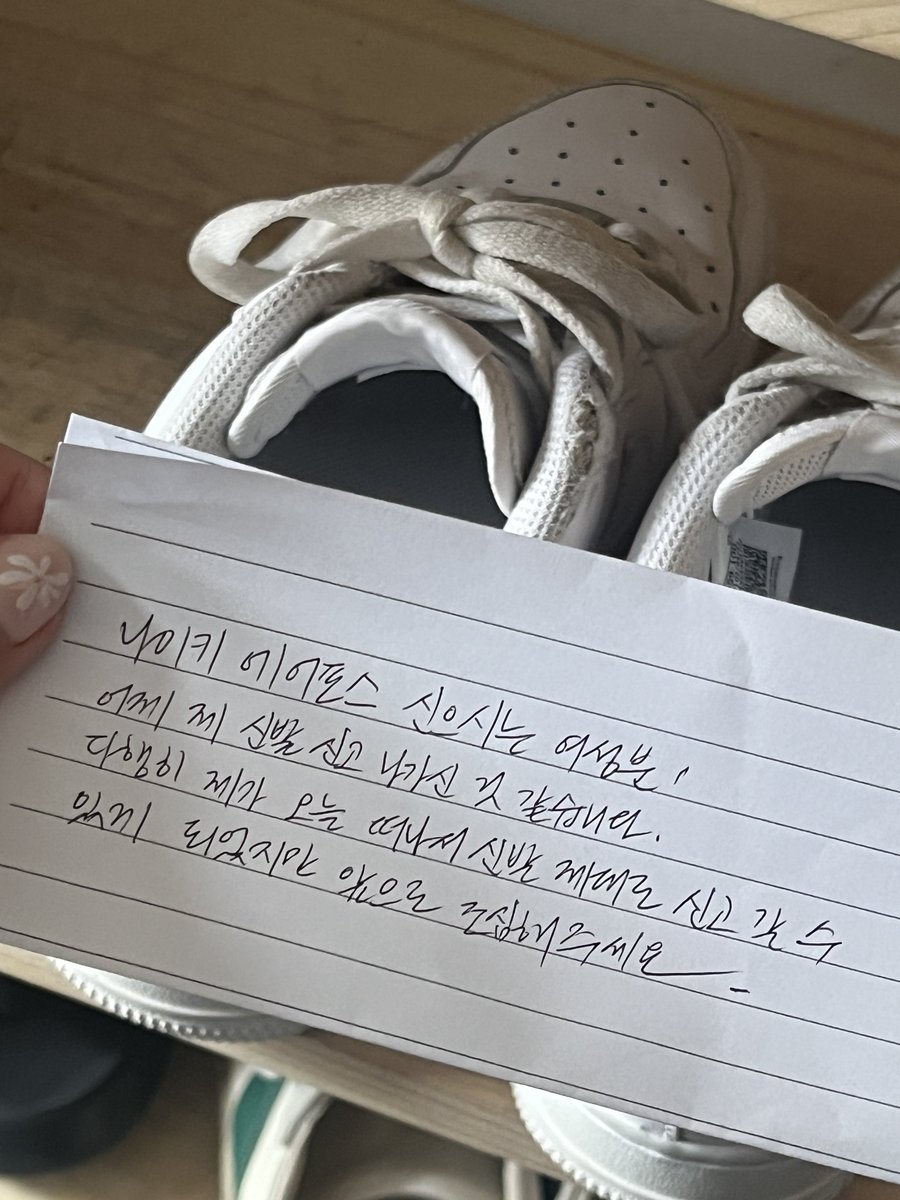 나이키 에어포스 신으시는 여성분!
어제 제 신발 신고 나가신 것 같습니다.
다행히 제가 오늘 떠나서 신발 제대로 신고 갈 수
있게 되었지만 앞으로 조심해주세요.